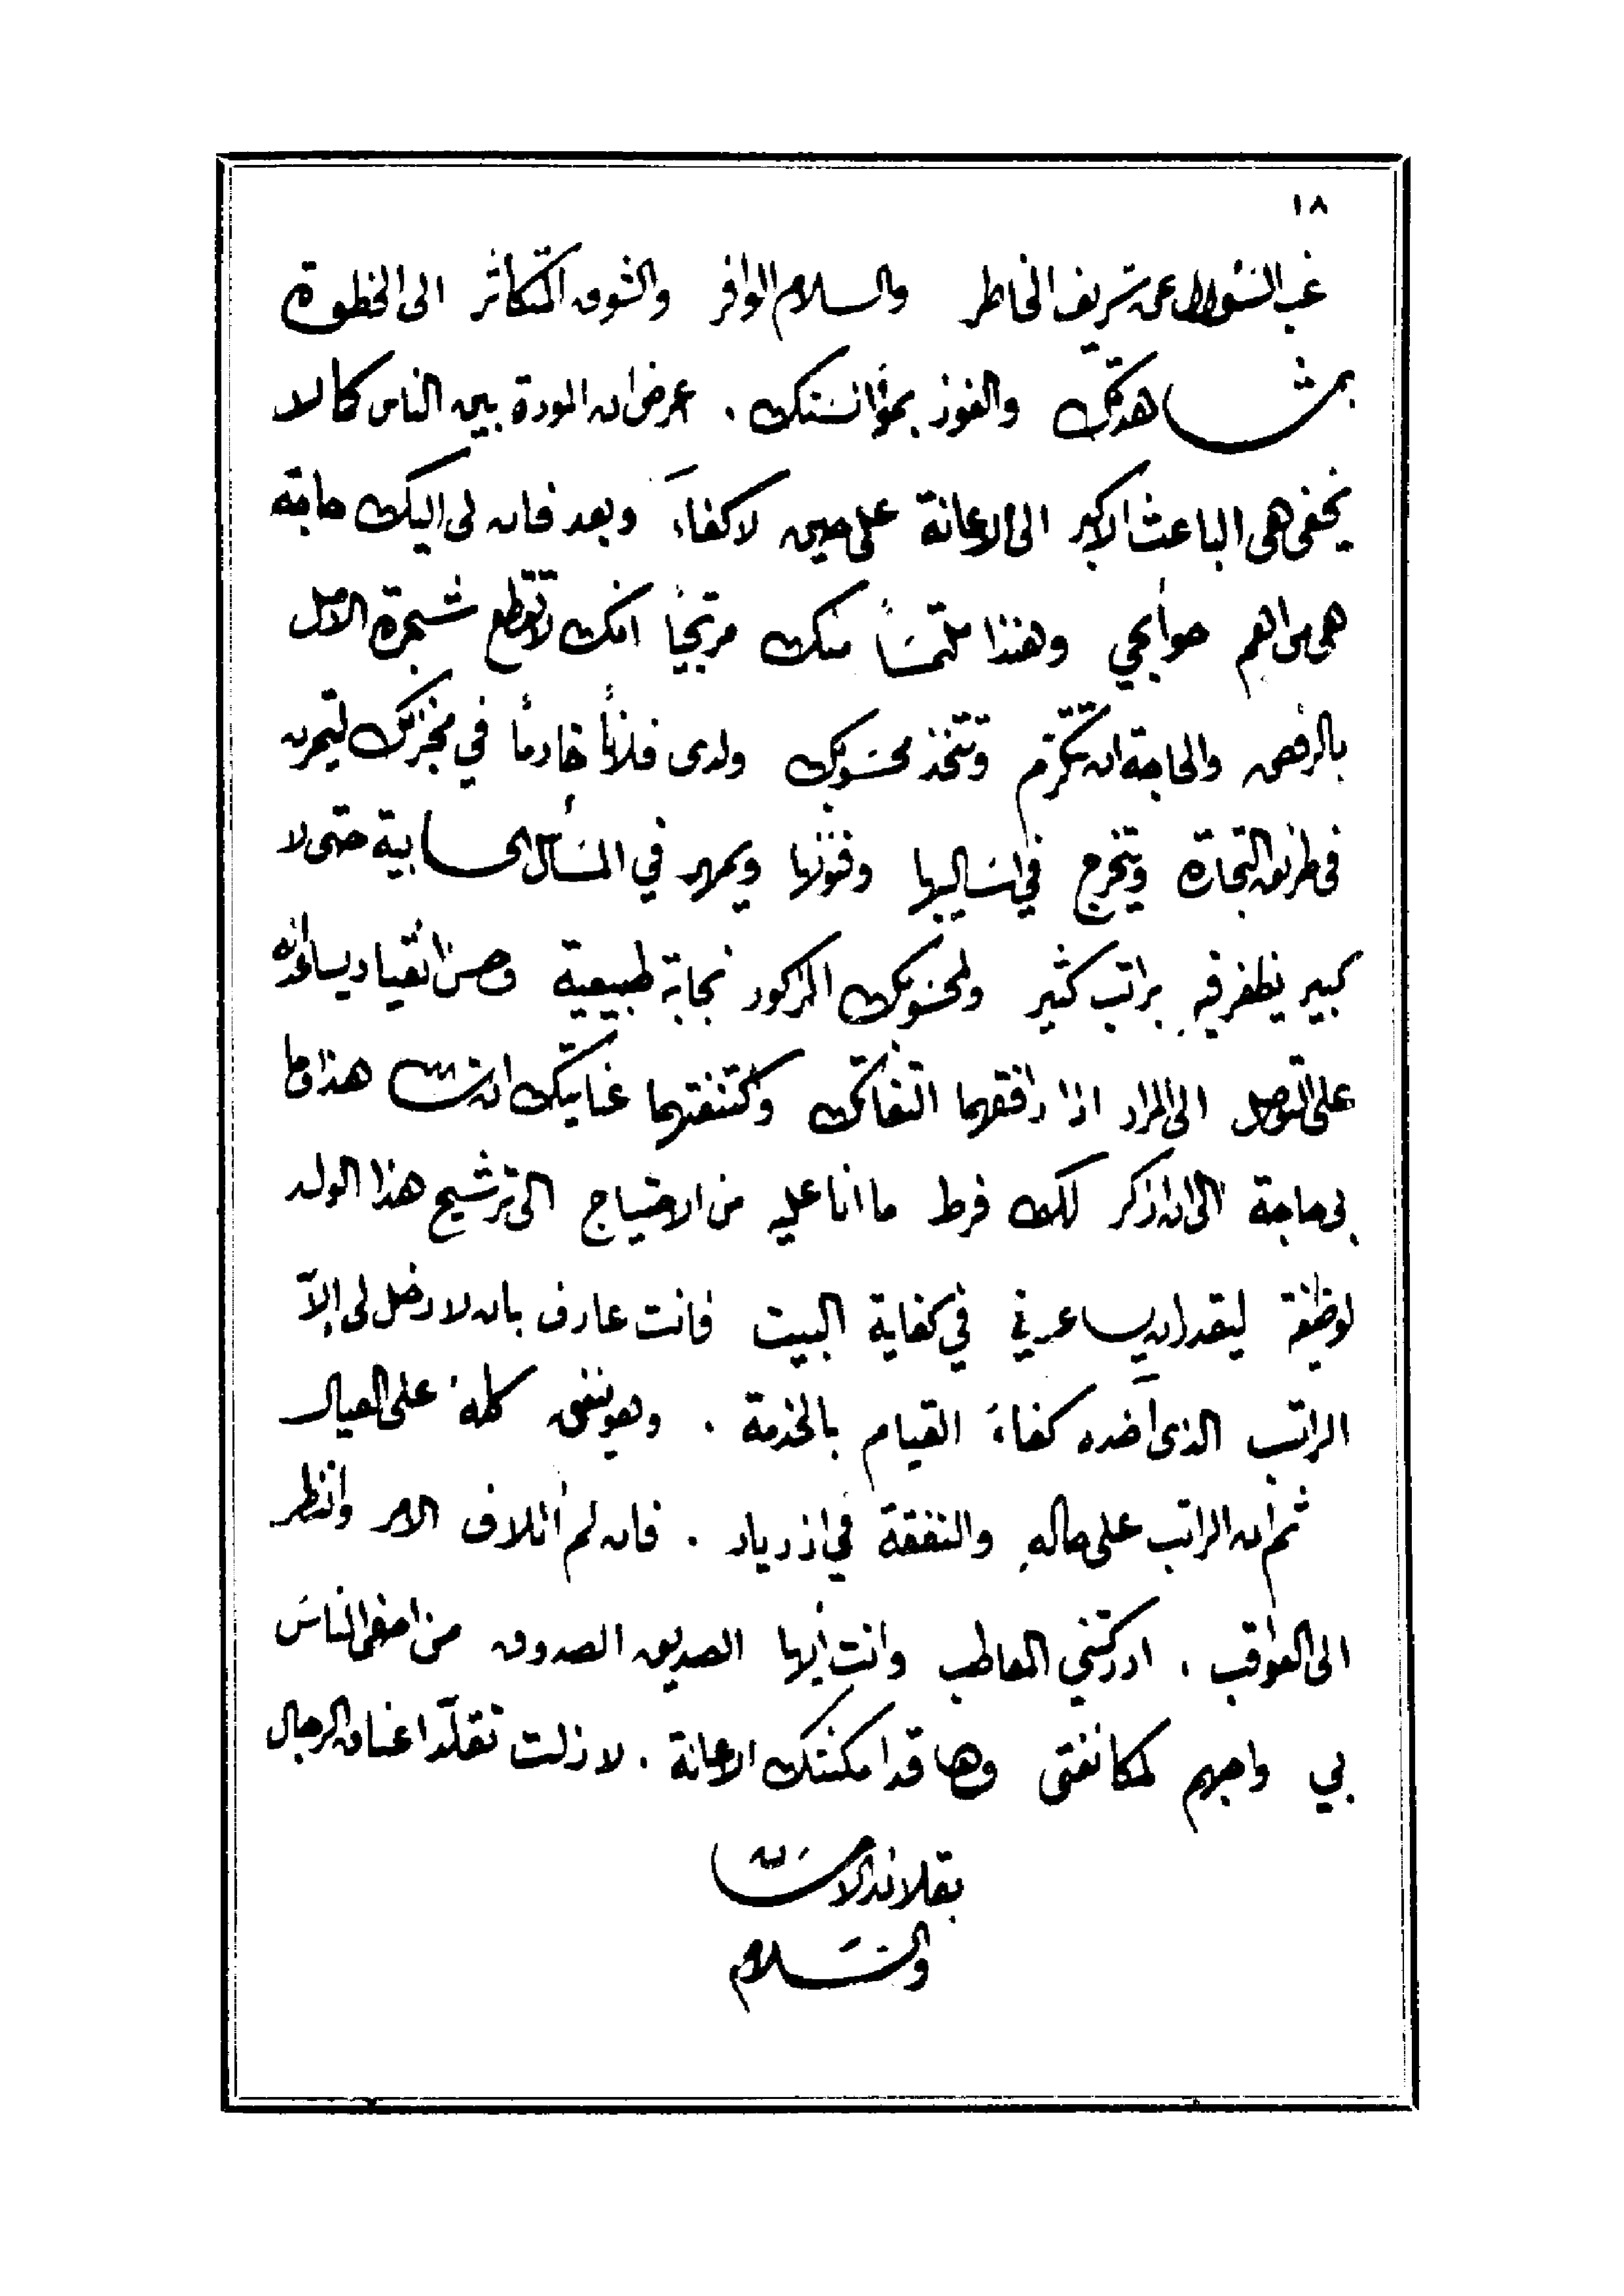 ١٨
غب السؤال عن شريف الخاطر والسلام الوافر والشوق المتكاثر الى الخطوة
بمشاهدتك والفوز بمؤانستك . عرض ان المودة بين الناس كما لا
يخفى هى الباعث الاكبر الى الاعانة على حين لا كفاءَ وبعد فان لى اليك حاجة
هى من اهم حوائجي وهنذا ملتمسًا منك مرتجيًا انك لا تقطع شجرة الامل
بالرفض والحاجة ان تتكرّم وتتخذ محسوبك ولدى فلانًا خادمًا في مخزنك ليتمرن
فى طرائق التجارة ويتخرج في اساليبها وفنونها ويمهر في المسائل الحسابية حتى لا
كبير يظفر فيه براتب كثير ولمحسوبك المذكور نجابة طبيعية وحسن انقياد يساعدانه
على التوصل الى المراد اذا رافقهما التفاتك وكتنفتهما عنايتك ان شاء هذا وما
بى حاجة الى ان اذكر لك فرط ما انا عليه من الاحتياج الى ترشيح هذا الولد
لوظيفة ليقدر ان يساعدني في كفاية البيت فانت عارف بان لا دخل لى إلاّ
الراتب الذى آخذه كفاءَ القيام بالخدمة . وهو ينفق كلهُ على العيال
ثم ان الراتب على حالهِ والنفقة في ازدياد . فان لم أتلاف الامر وانظر
الى العواقب . ادركتني المعاطب وانت ايها الصديق الصدوق من احفى الناس
بي واحبهم لمكانفتى وها قد امكنتك الاعانة . لا زلت تقلّد اعناق الرجال
بقلائد الاحسان
والسلام